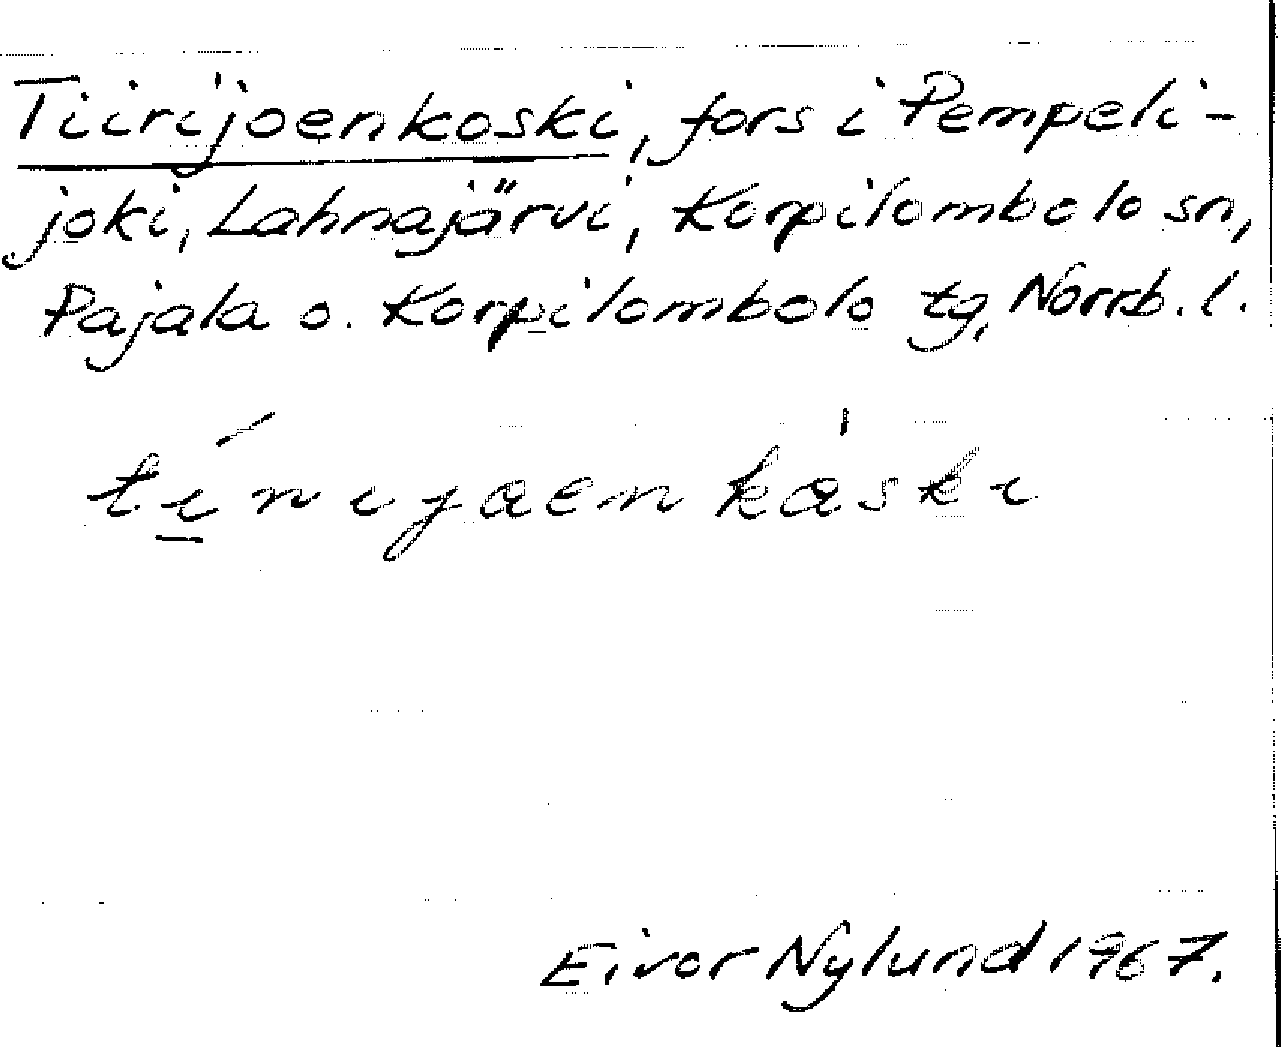 Tiirijoenkoski, fors i Pempeli-
joki, Lahnajärvi, Korpilombolo sn,
Pajala o. Korpilombolo tg, Norrb. l.
Eivor Nylund 1967.